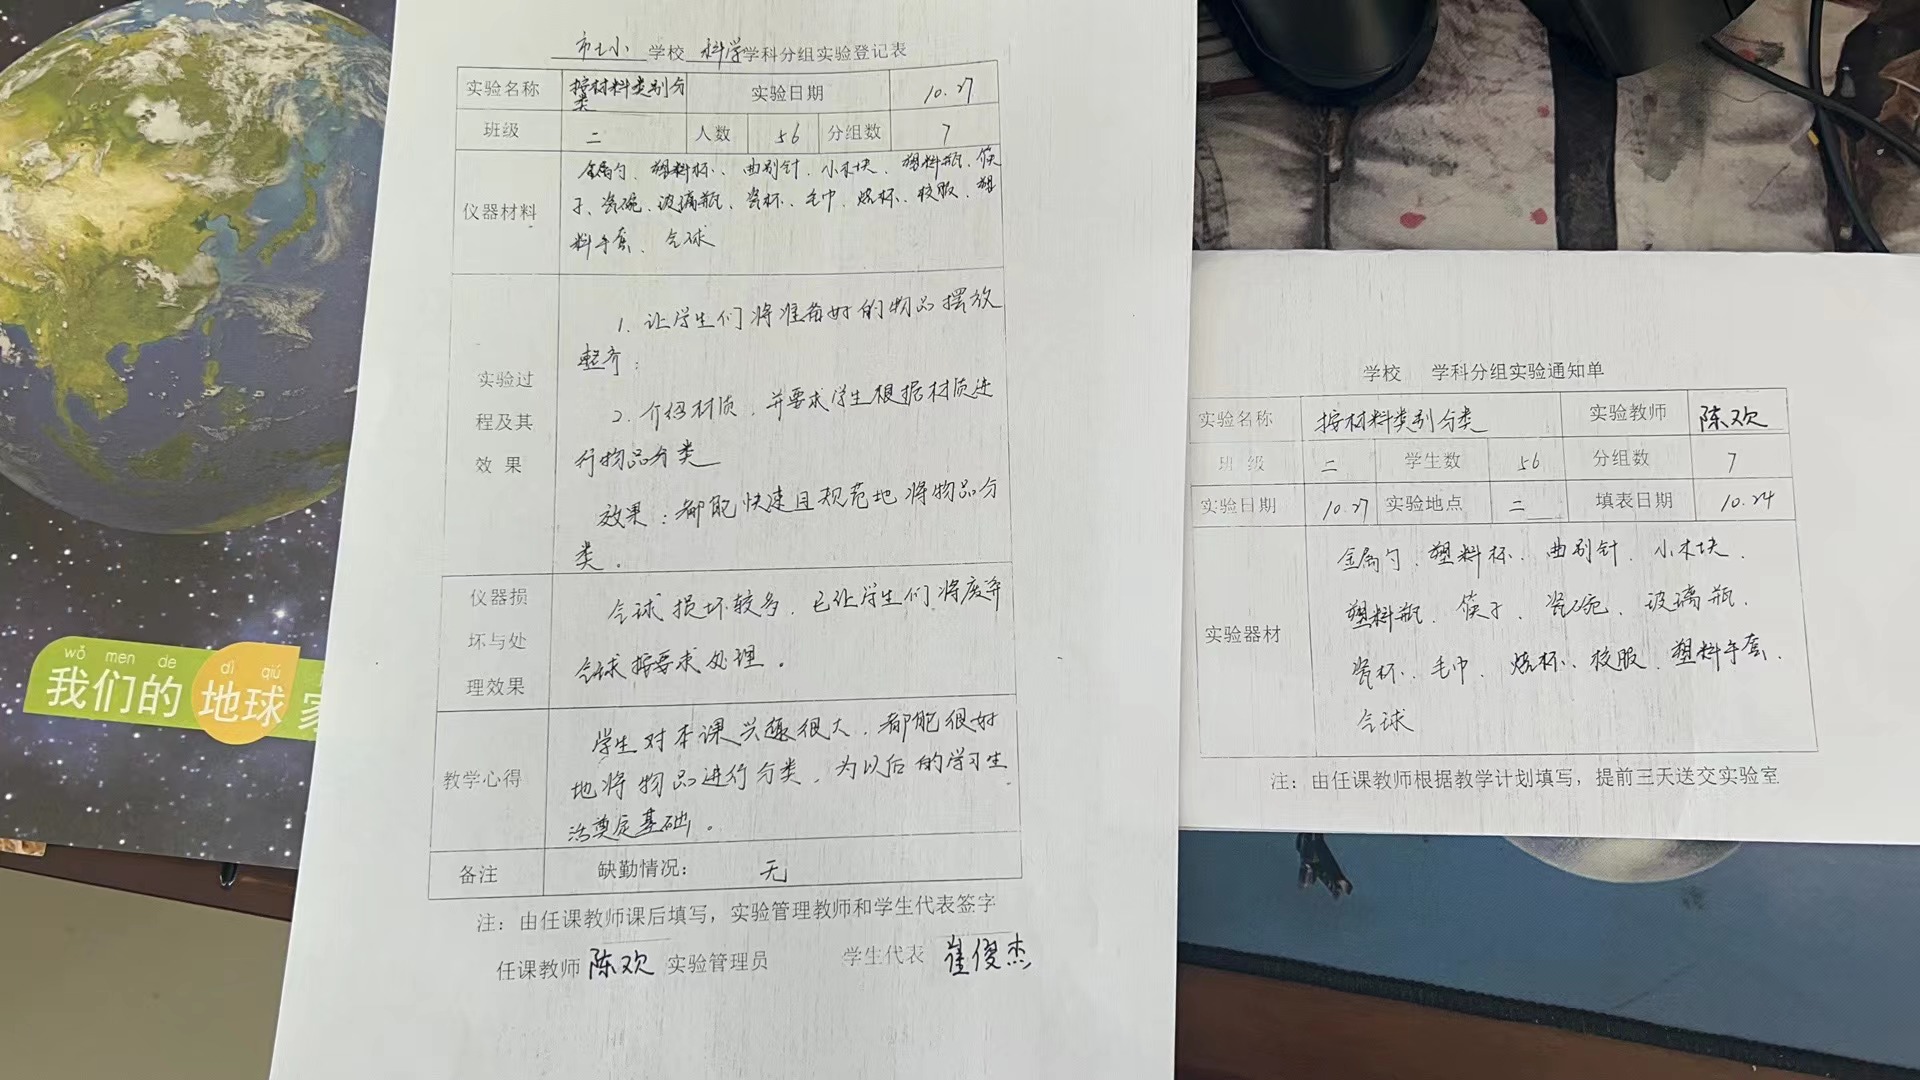 市七小 学校 科学学科分组实验登记表
实验名称 按材料类别分类 实验日期 10.27
班级 二 人数 56 分组数 7
仪器材料
金属勺、塑料杯、曲别针、小木块、塑料瓶、筷
子、瓷碗、玻璃瓶、瓷杯、毛巾、烧杯、校服、塑
料手套、气球
实验过程及其效果
1. 让学生们将准备好的物品摆放
整齐;
2. 介绍材质,并要求学生根据材质进
行物品分类
效果:都能快速且规范地将物品分
类。
仪器损坏与处理效果
气球损坏较多,已让学生们将废弃
气球按要求处理。
教学心得
学生对本课兴趣很大,都能很好
地将物品进行分类,为以后的学习生
活奠定基础。
备注 缺勤情况: 无
注:由任课教师课后填写,实验管理教师和学生代表签字
任课教师 陈欢 实验管理员 学生代表 崔俊杰
学校 学科分组实验通知单
实验名称 按材料类别分类 实验教师 陈欢
班级 二 学生数 56 分组数 7
实验日期 10.27 实验地点 二 填表日期 10.24
实验器材
金属勺、塑料杯、曲别针、小木块、
塑料瓶、筷子、瓷碗、玻璃瓶、
瓷杯、毛巾、烧杯、校服、塑料手套、
气球
注:由任课教师根据教学计划填写,提前三天送交实验室
wǒ men de dì qiú
我们的地球家